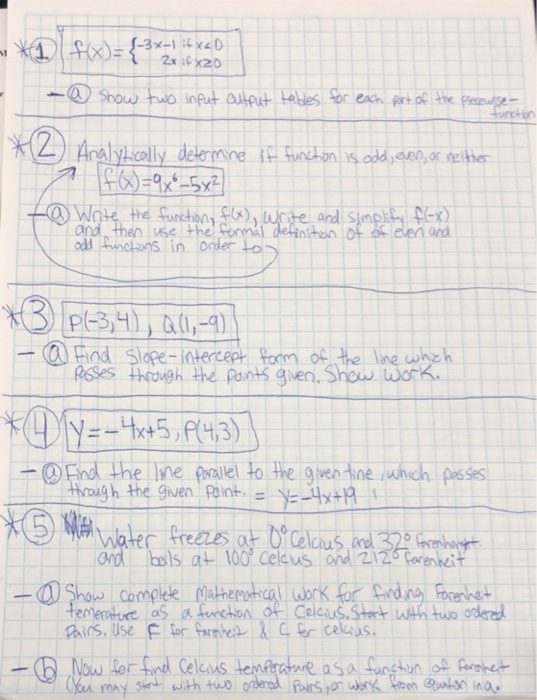 *1 f(x)={-3x-1 if x<0
2x if x≥0
- a Show two input output tables for each part of the piecewise-
function
*2 Analytically determine if function is odd, even, or neither
f(x)=9x⁶-5x²
- a Write the function, f(x), write and simplify f(-x)
and then use the formal definition of of even and
odd functions in order to
*3 P(-3,4), Q(1,-9)
- a Find slope-intercept form of the line which
passes through the points given. Show work.
*4 Y=-4x+5, P(4,3)
- a Find the line parallel to the given line, which passes
through the given point. = y=-4x+19
*5 Water freezes at 0° Celcius and 32°
and boils at 100° celcius and 212° farenheit
- a Show complete mathematical work for finding Farenheit
temerature as a function of Celcius. Start with two ordered
pairs. Use F for farenheit & C for celcius.
- b Now for find Celcius temperature as a function of farenheit
(You may start with two ordered pairs, or work from equation in a.